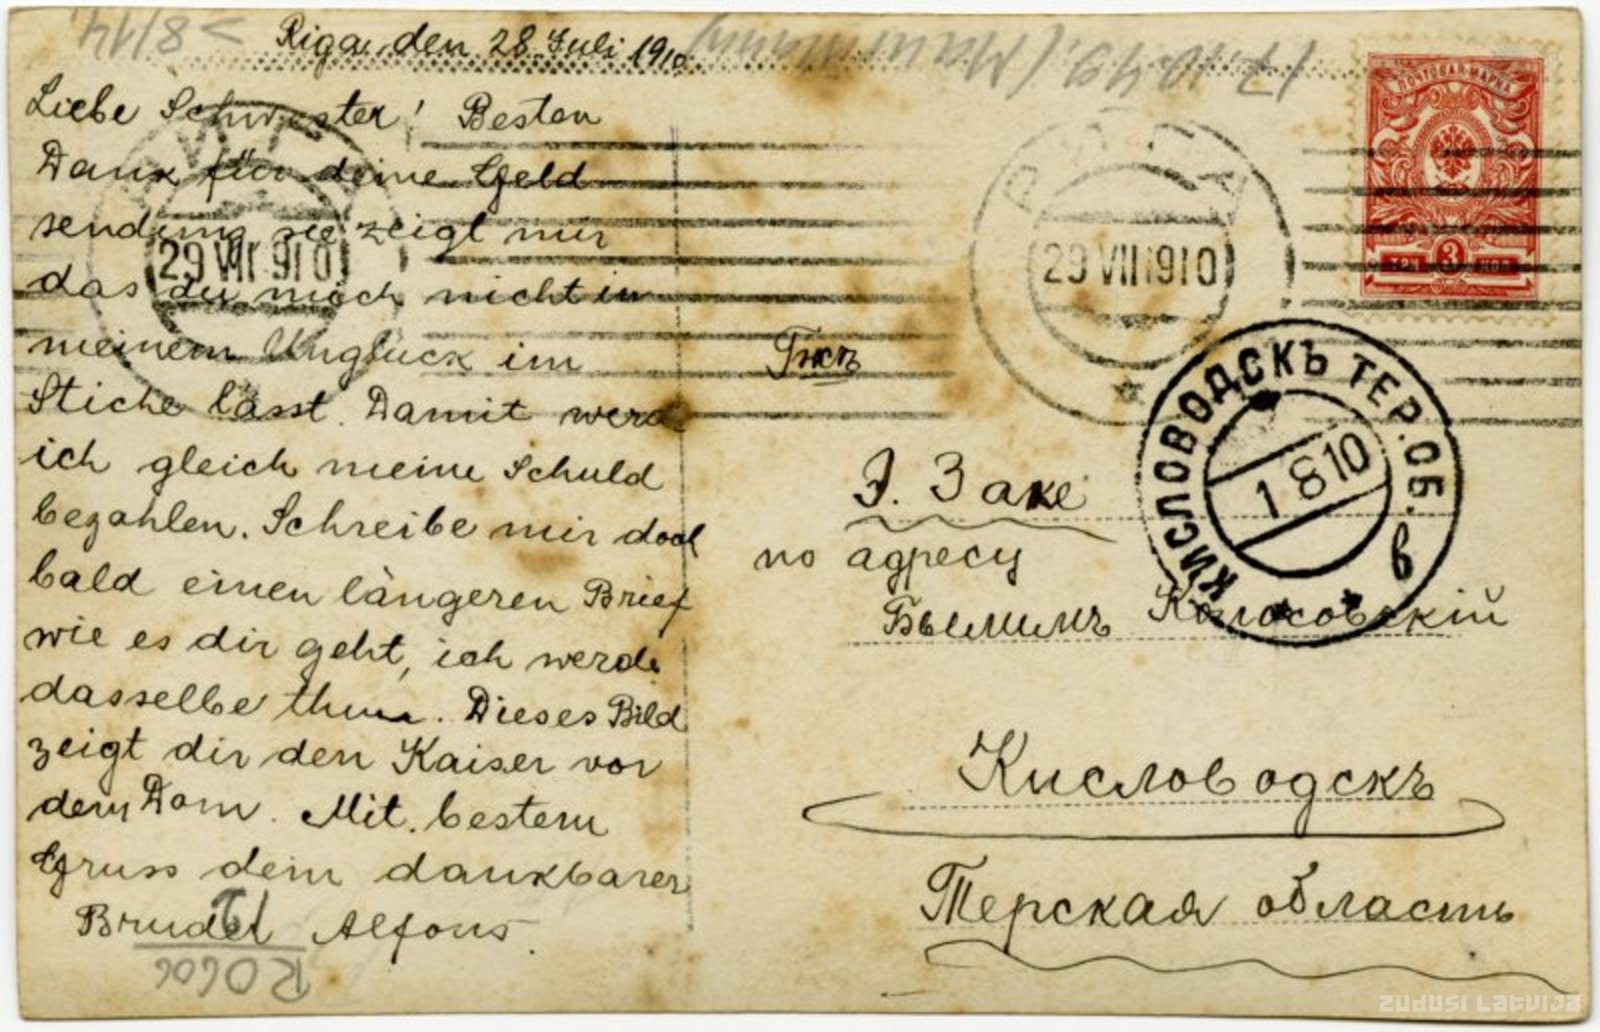 Riga, den 28. Juli 1910
Liebe Schwester! Besten
Dank für deine Geld
sendung sie zeigt mir
das du mich nicht in
meinem Unglück im
Stiche lässt. Damit werd
ich gleich meine Schuld
bezahlen. Schreibe mir doch
bald einen längeren Brief
wie es dir geht, ich werde
dasselbe thun. Dieses Bild
zeigt dir den Kaiser vor
dem Dom. Mit bestem
Gruss dein dankbarer
Bruder Alfons.
R0606
> 8/14
29 VII 910
РИГА
29 VII 1910
ПОЧТОВАЯ МАРКА
ТРИ 3 КОП
КИСЛОВОДСКЪ ТЕР. ОБ. в
1 8 10
Гжѣ
Э. Заке
по адресу
Колосовскій
Кисловодскъ
Терская область
ZUDUSI LATVIJA